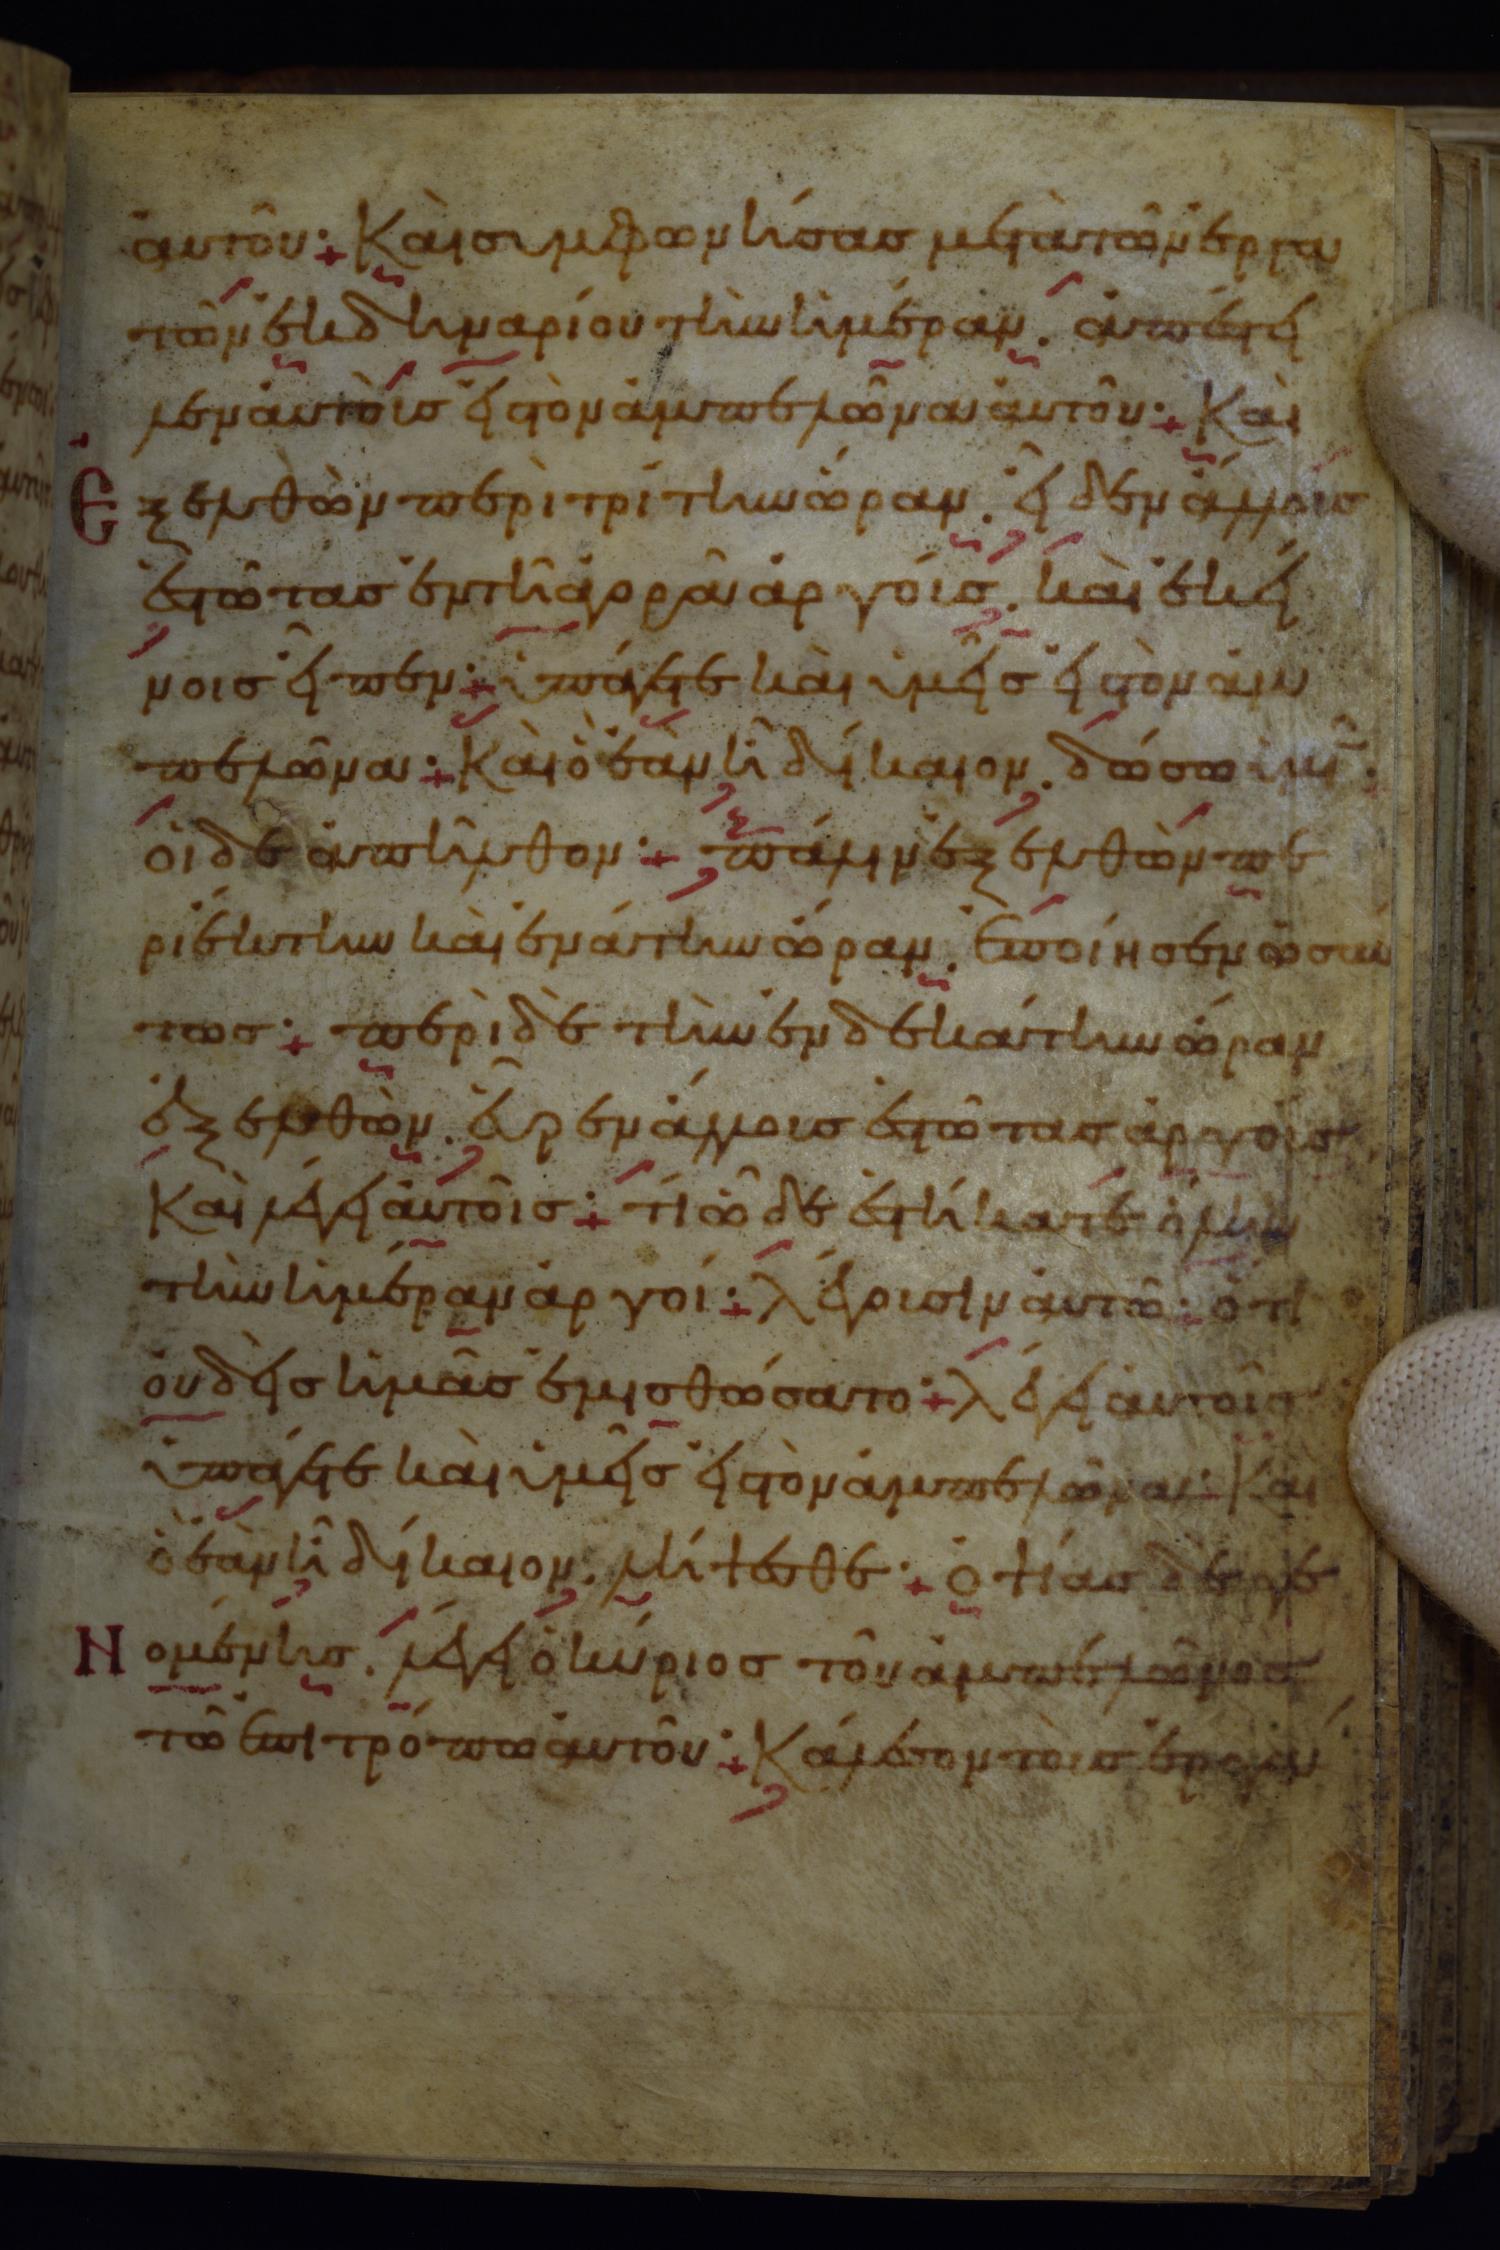 ἀυτοῦ: + Κὰι σιμφωνήσας μετὰ τῶν ἐργα
τῶν ἐκ δηναρίου τὴν ἡμέραν. ἀπέστει
λεν ἀυτοὶς εἰς τὸν ἀμπελῶνα ἀυτοῦ: + Κὰι
Ἐξελθὼν περὶ τρίτην ὥραν. εἶδεν ἄλλους
ἑστῶτας ἐν τῆ ἀγορᾶ ἀργοίς. κὰι ἐκεί
νοις εἶπεν: + ὑπάγετε κὰι ὑμεῖς εἰς τὸν ἀμ
πελῶνα: + Κὰι ὃ ἐὰν ῆ δίκαιον. δώσω ὑμῖ:
οἱ δε ἀπῆλθον: + πάλιν ἐξελθὼν πε
ρὶ ἕκτην κὰι ἐνάτην ὥραν. ἐποίησεν ὡσαύ
τως: + περὶ δὲ τὴν ἑνδεκάτην ὥραν
ἐξελθὼν. εὗρεν ἄλλοις ἑστῶτας ἀργοίς
Κὰι λέγει ἀυτοῖς: + τί ὧδε ἑστήκατε ὅλην
τὴν ἡμέραν ἀργοί: + λέγουσιν ἀυτῶ: + ὅτι
ὀυδεὶς ἡμᾶς ἐμισθώσατο: + λέγει ἀυτοῖς:
ὑπάγετε κὰι ὑμεῖς εἰς τὸν ἀμπελῶνα: Κὰι
ὃ ἐὰν ῆ δίκαιον. λήψεσθε: + ὀψίας δὲ γε
Νομένης. λέγει ὁ κύριος τοῦ ἀμπελῶνος
τῶ ἐπιτρόπω ἀυτοῦ: + Κάλεσον τοὶς ἐργά